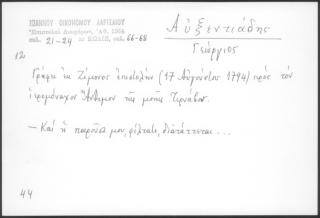 ΙΩΑΝΝΟΥ ΟΙΚΟΝΟΜΟΥ ΛΑΡΙΣΑΙΟΥ
Ἐπιστολαὶ Διαφόρων, Ἀθ. 1964
σελ. 21-24 κωδιξ, σελ. 66-68
Αὐξεντιάδης
Γεώργιος
12)
Γράφει ἐκ Ζέμονος ἐπιστολὴν (17 Αὐγούστου 1794) πρὸς τὸν
ἱερομόναχον Ἄνθιμον τῆς μονῆς Τιρνάβου.
— Καὶ ἡ παροῦσα μου, φίλτατε, διατάττεται...
44